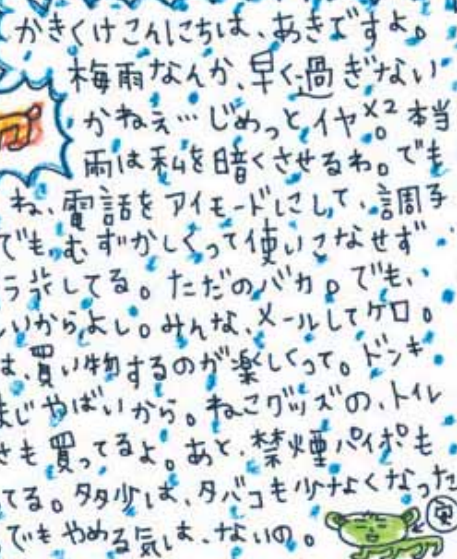 かきくけこんにちは、あきですよ。
梅雨なんか、早く過ぎない
かねぇ…じめっと、イヤ×2。本当
雨は私を暗くさせるわ。でも
ね、電話をアイモードにして、調子
でも、むずかしくって使いこなせず
してる。ただのバカ。でも、
いいからよし。みんな、メールしてケロ。
は、買い物するのが楽しくって。ドンキ
まじやばいから。ねこグッズの、トイレ
さも買ってるよ。あと、禁煙パイポも
てる。多少は、タバコも少なくなった
でもやめる気は、ないの。